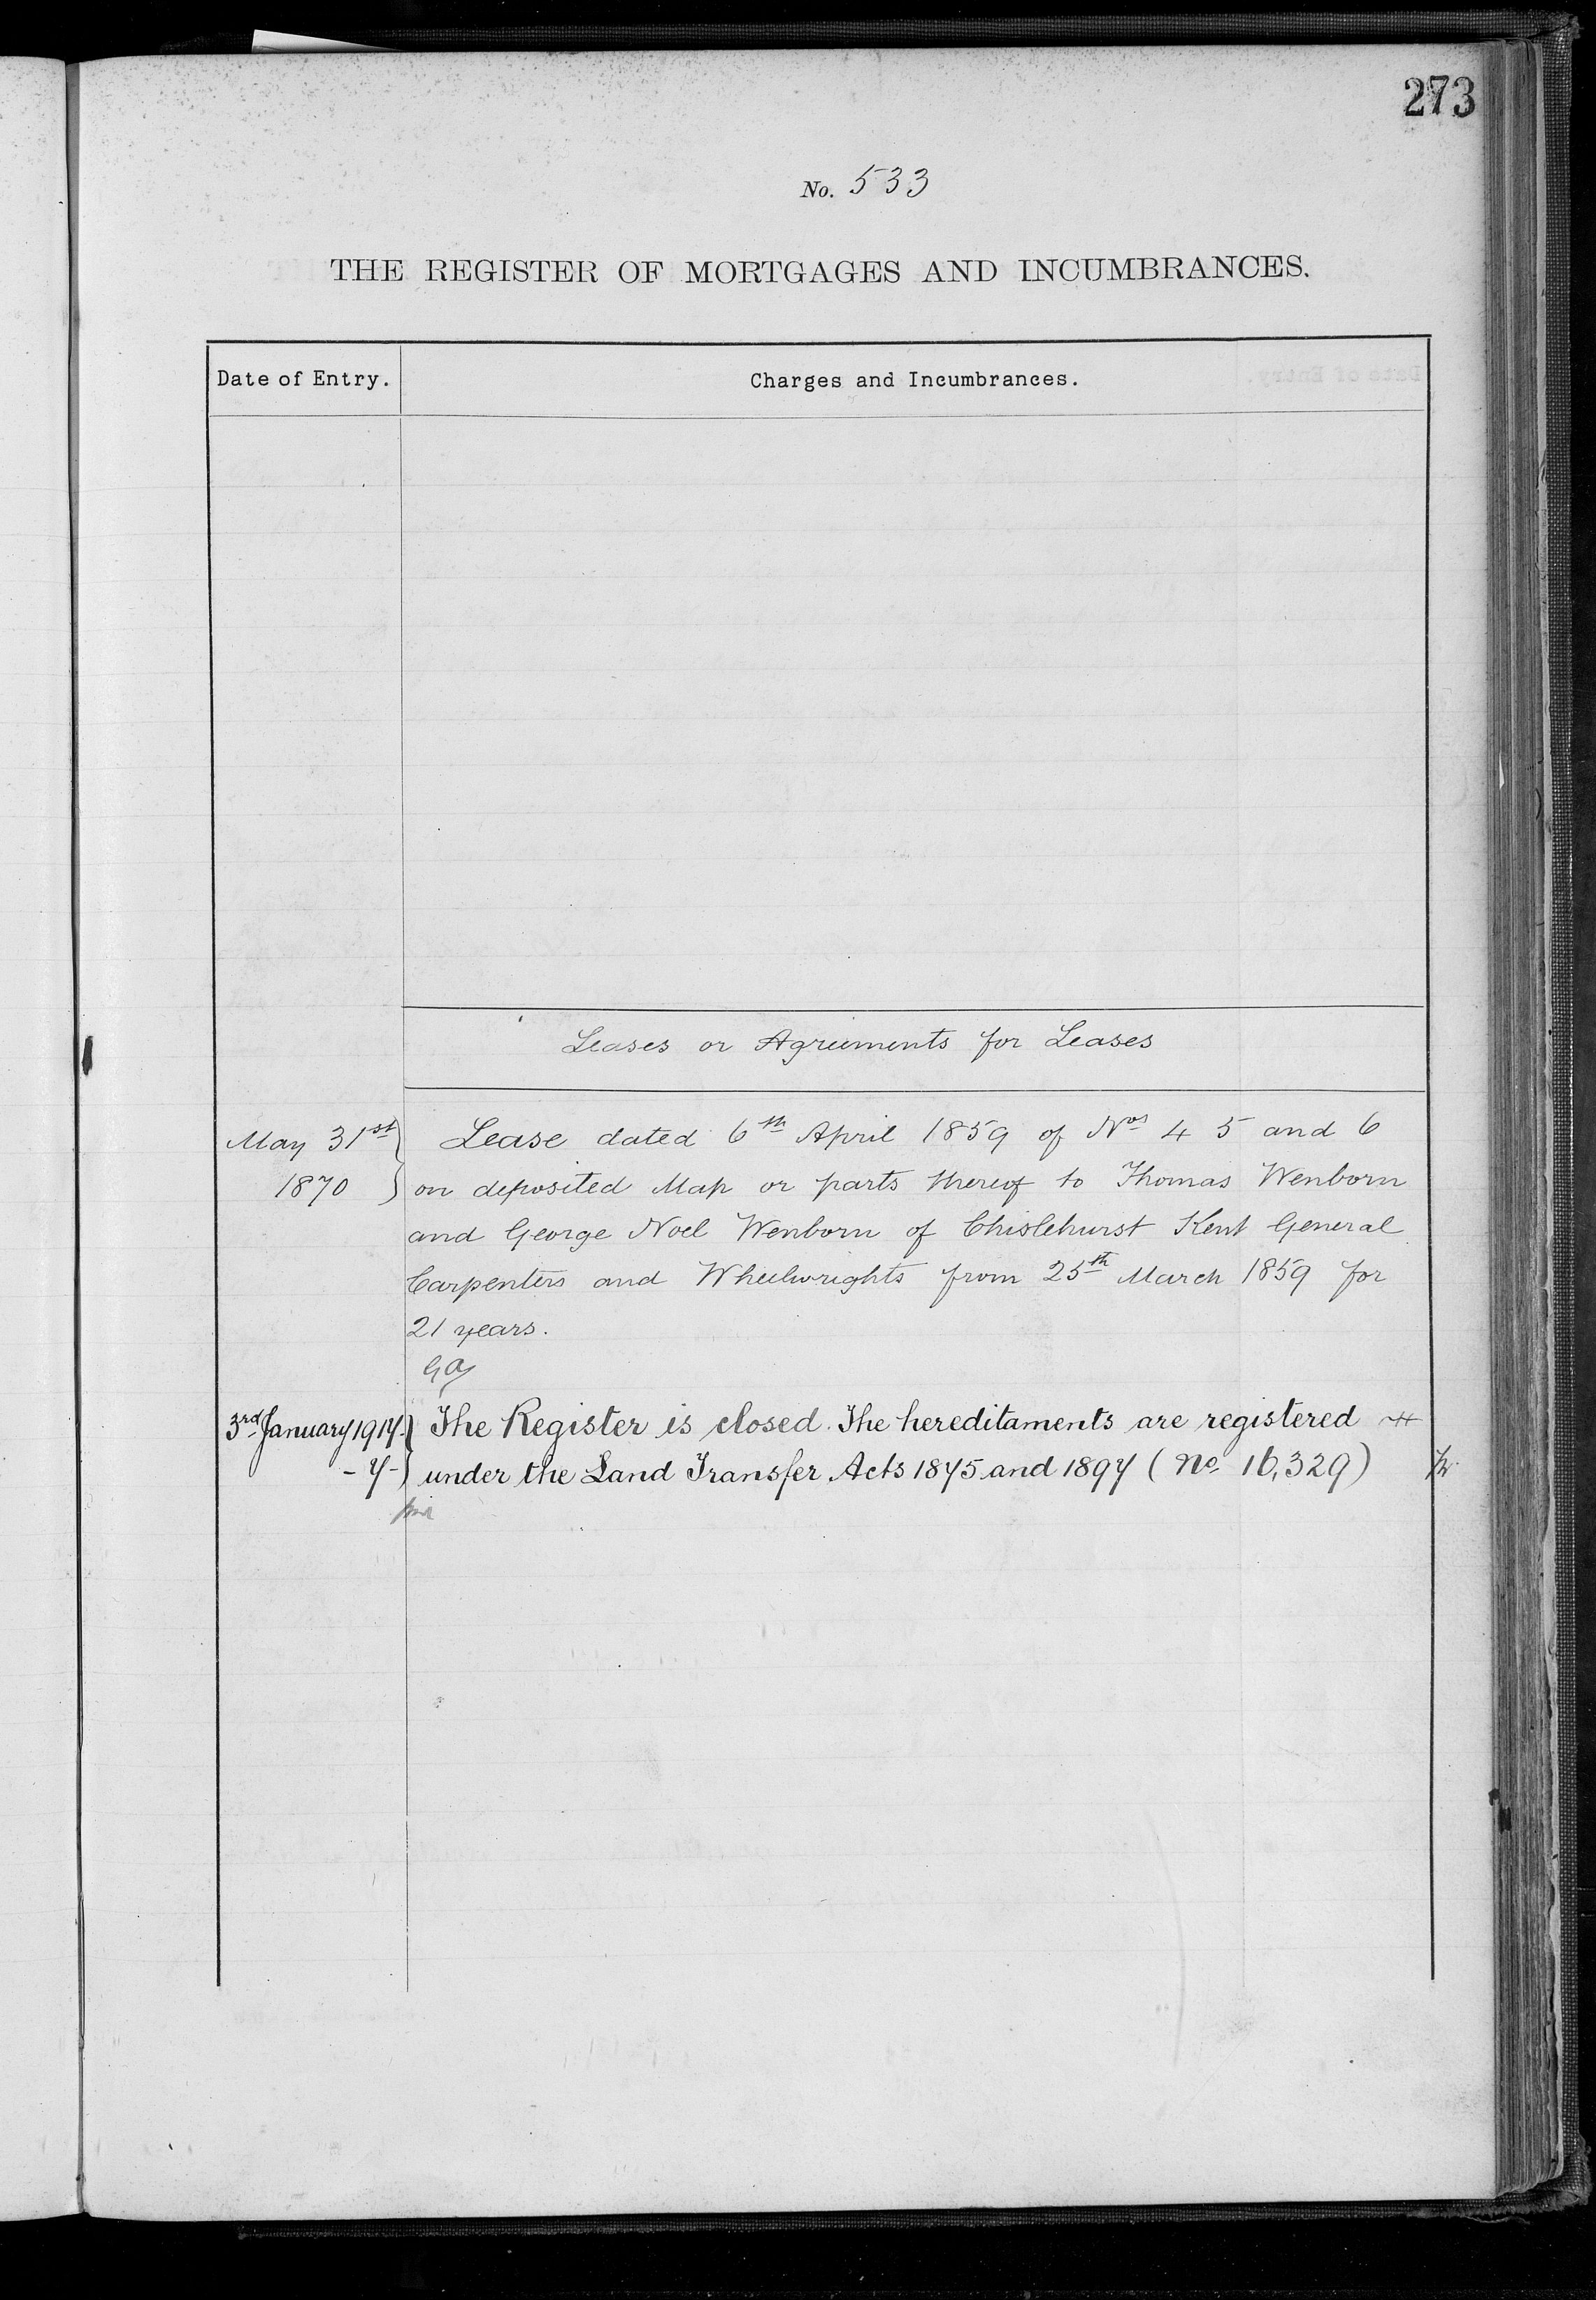 273
No. 533
THE REGISTER OF MORTGAGES AND INCUMBRANCES.
Date of Entry.
Charges and Incumbrances.
Leases or Agreements for Leases
May 31st
1870
Lease dated 6th April 1859 of Nos 4 5 and 6
on deposited Map or parts thereof to Thomas Wenborn
and George Noel Wenborn of Chislehurst Kent General
Carpenters and Wheelwrights from 25th March 1859 for
21 years.
3rd January 1917.
- 7 -
The Register is closed. The hereditaments are registered
under the Land Transfer Acts 1875 and 1897 (No. 16,329)